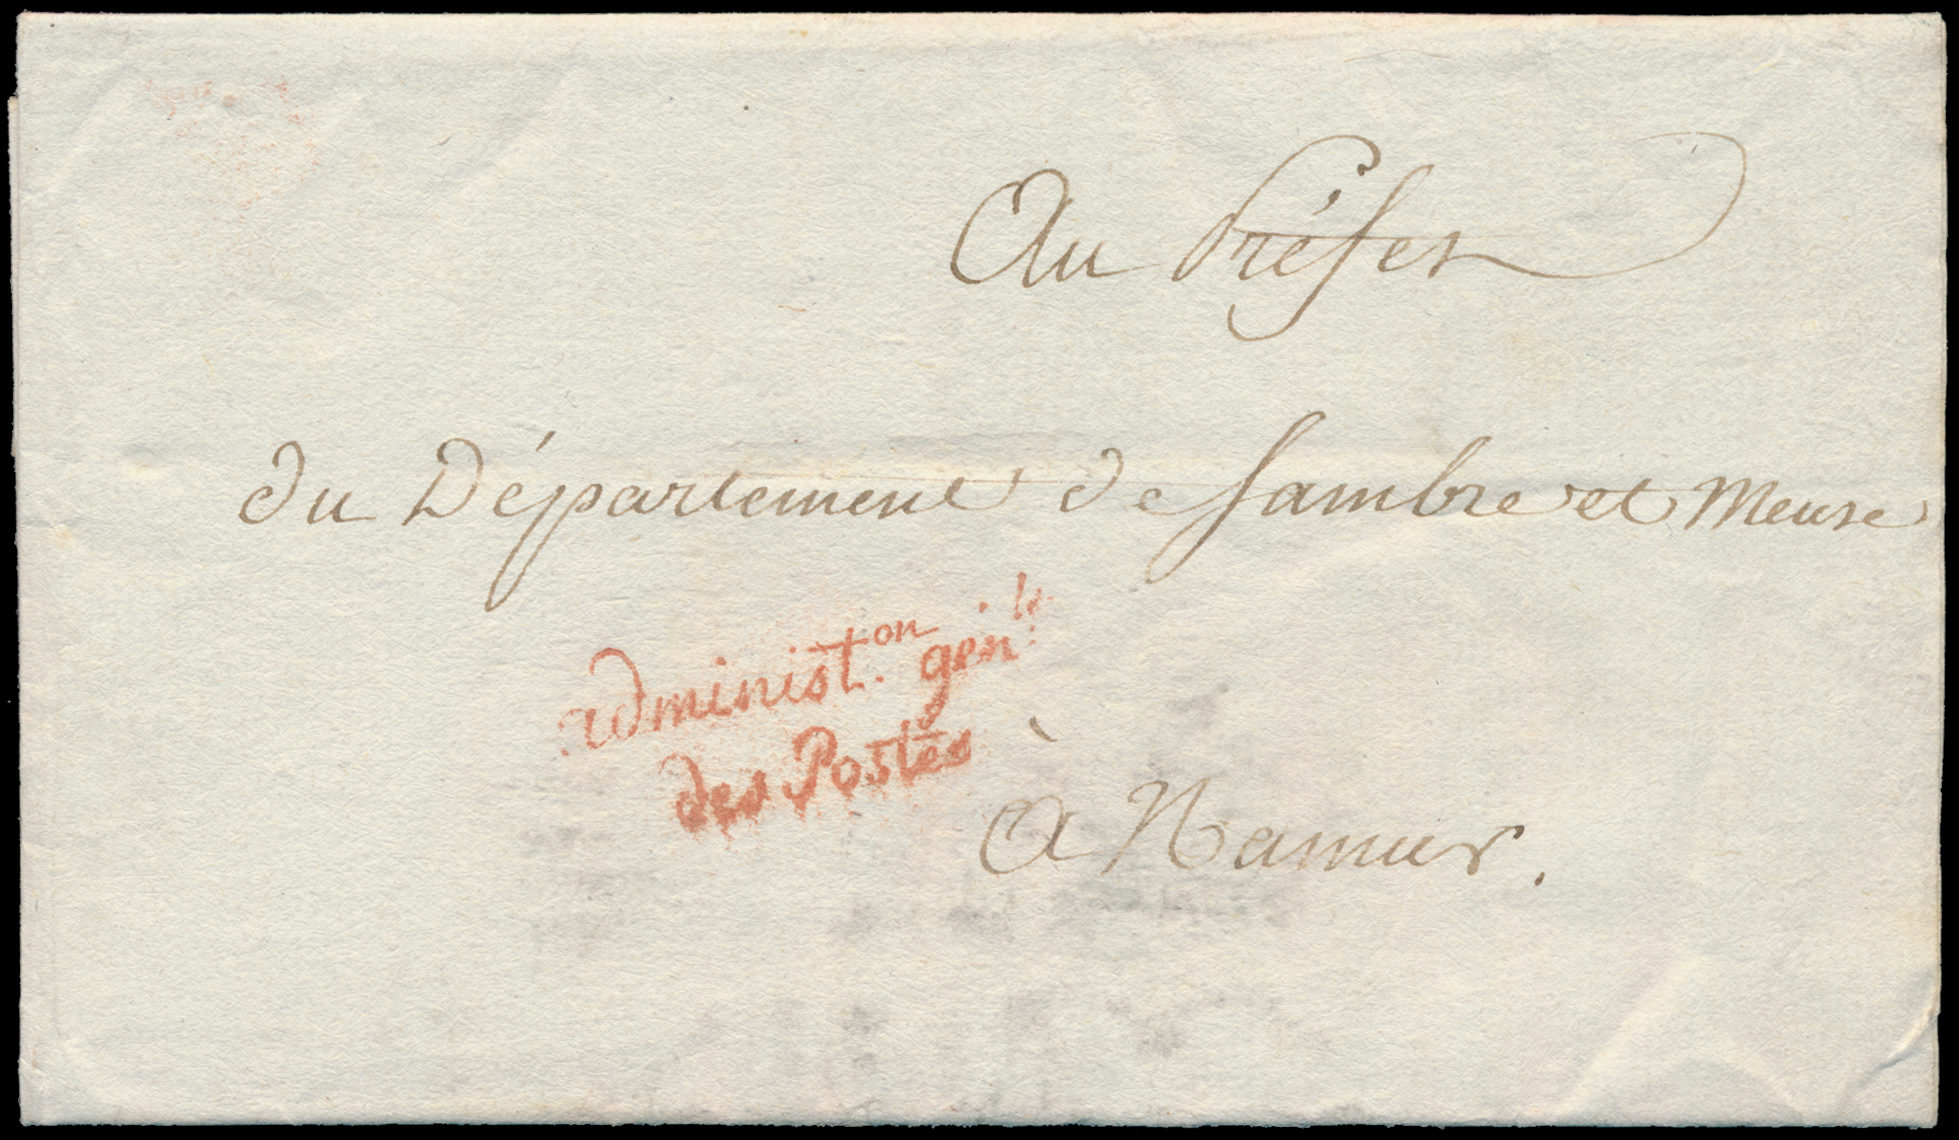 Au Préfet
du Département de Sambre et Meuse
administ.on gén.le
des Postes
à Namur.